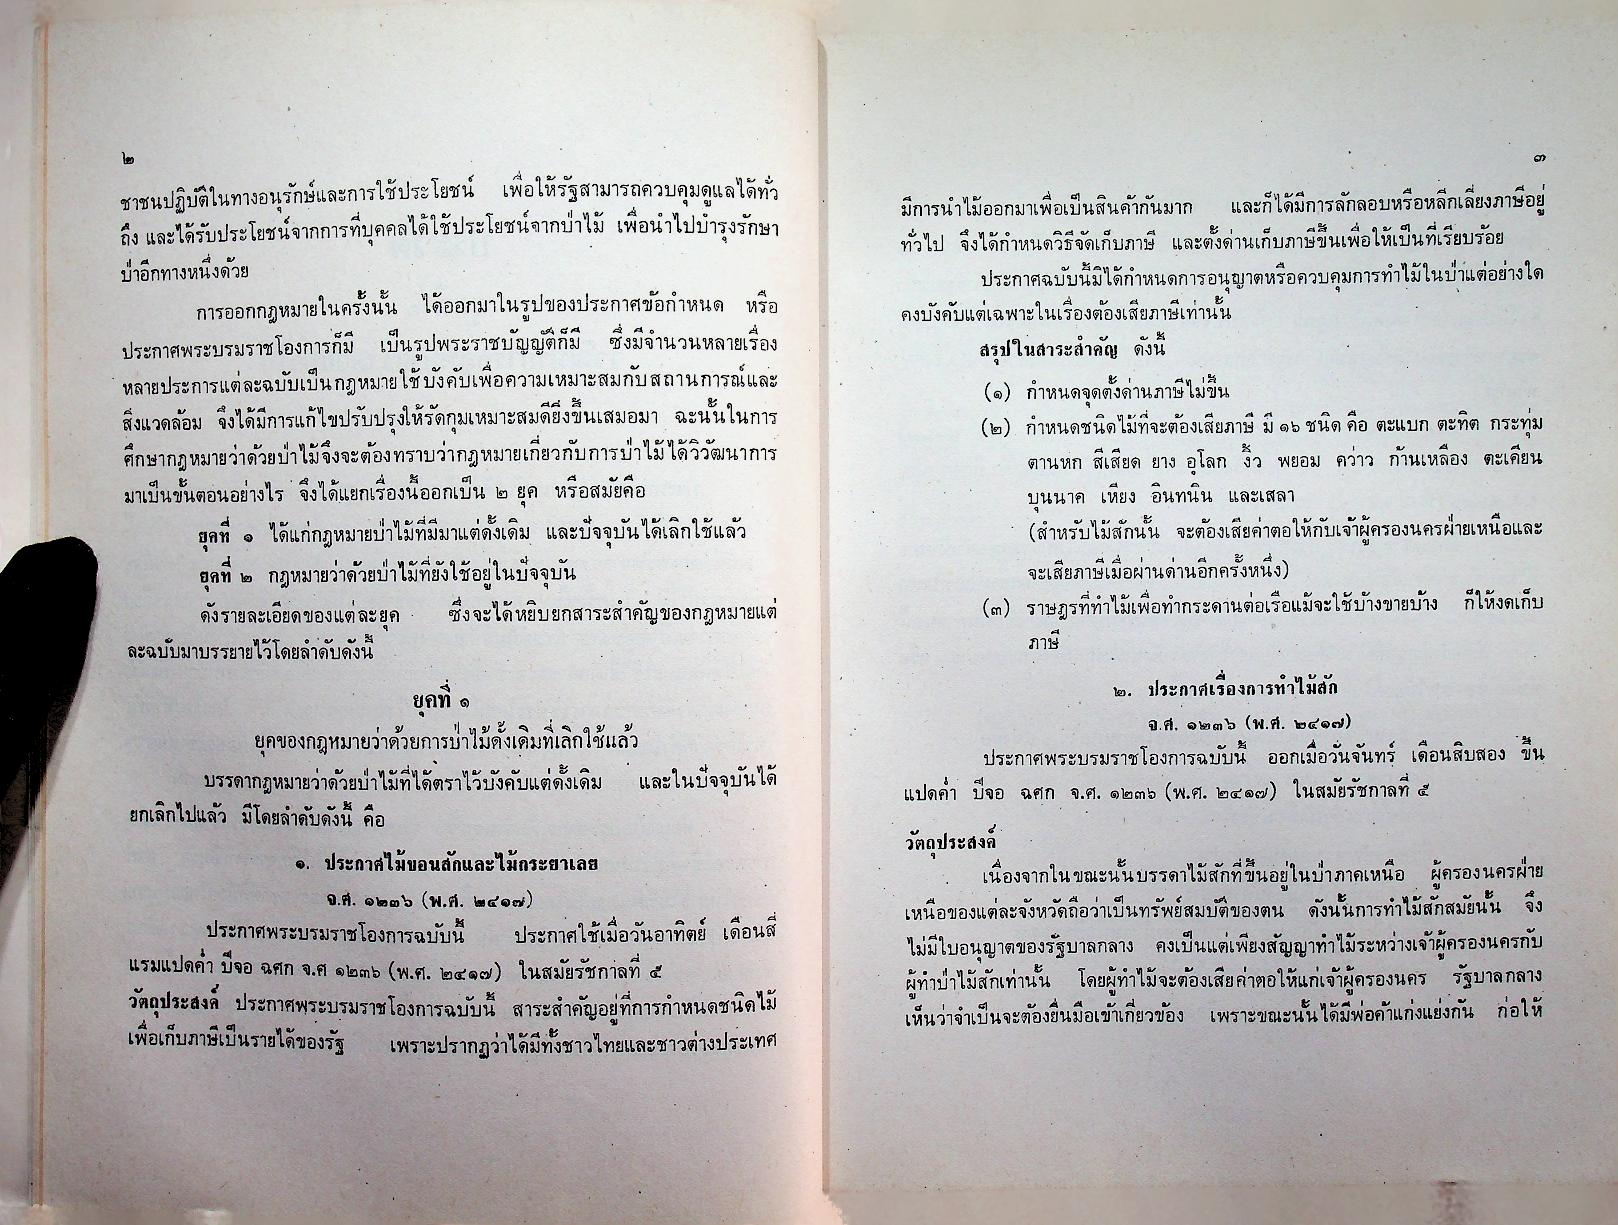 ๒
ชาชนปฏิบัติในทางอนุรักษ์และการใช้ประโยชน์ เพื่อให้รัฐสามารถควบคุมดูแลได้ทั่ว
ถึง และได้รับประโยชน์จากการที่บุคคลได้ใช้ประโยชน์จากป่าไม้ เพื่อนำไปบำรุงรักษา
ป่าอีกทางหนึ่งด้วย
การออกกฎหมายในครั้งนั้น ได้ออกมาในรูปของประกาศข้อกำหนด หรือ
ประกาศพระบรมราชโองการก็มี เป็นรูปพระราชบัญญัติก็มี ซึ่งมีจำนวนหลายเรื่อง
หลายประการแต่ละฉบับเป็นกฎหมายใช้บังคับเพื่อความเหมาะสมกับสถานการณ์และ
สิ่งแวดล้อม จึงได้มีการแก้ไขปรับปรุงให้รัดกุมเหมาะสมดียิ่งขึ้นเสมอมา ฉะนั้นในการ
ศึกษากฎหมายว่าด้วยป่าไม้จึงจะต้องทราบว่ากฎหมายเกี่ยวกับการป่าไม้ได้วิวัฒนาการ
มาเป็นขั้นตอนอย่างไร จึงได้แยกเรื่องนี้ออกเป็น ๒ ยุค หรือสมัยคือ
ยุคที่ ๑ ได้แก่กฎหมายป่าไม้ที่มีมาแต่ดั้งเดิม และปัจจุบันได้เลิกใช้แล้ว
ยุคที่ ๒ กฎหมายว่าด้วยป่าไม้ที่ยังใช้อยู่ในปัจจุบัน
ดังรายละเอียดของแต่ละยุค ซึ่งจะได้หยิบยกสาระสำคัญของกฎหมายแต่
ละฉบับมาบรรยายไว้โดยลำดับดังนี้
ยุคที่ ๑
ยุคของกฎหมายว่าด้วยการป่าไม้ดั้งเดิมที่เลิกใช้แล้ว
บรรดากฎหมายว่าด้วยป่าไม้ที่ได้ตราไว้บังคับแต่ดั้งเดิม และในปัจจุบันได้
ยกเลิกไปแล้ว มีโดยลำดับดังนี้ คือ
๑. ประกาศไม้ขอนสักและไม้กระยาเลย
จ.ศ. ๑๒๓๖ (พ.ศ. ๒๔๑๗)
ประกาศพระบรมราชโองการฉบับนี้ ประกาศใช้เมื่อวันอาทิตย์ เดือนสี่
แรมแปดค่ำ ปีจอ ฉศก จ.ศ ๑๒๓๖ (พ.ศ. ๒๔๑๗) ในสมัยรัชกาลที่ ๕
วัตถุประสงค์ ประกาศพระบรมราชโองการฉบับนี้ สาระสำคัญอยู่ที่การกำหนดชนิดไม้
เพื่อเก็บภาษีเป็นรายได้ของรัฐ เพราะปรากฏว่าได้มีทั้งชาวไทยและชาวต่างประเทศ
๓
มีการนำไม้ออกมาเพื่อเป็นสินค้ากันมาก และก็ได้มีการลักลอบหรือหลีกเลี่ยงภาษีอยู่
ทั่วไป จึงได้กำหนดวิธีจัดเก็บภาษี และตั้งด่านเก็บภาษีขึ้นเพื่อให้เป็นที่เรียบร้อย
ประกาศฉบับนี้มิได้กำหนดการอนุญาตหรือควบคุมการทำไม้ในป่าแต่อย่างใด
คงบังคับแต่เฉพาะในเรื่องต้องเสียภาษีเท่านั้น
สรุปในสาระสำคัญ ดังนี้
(๑) กำหนดจุดตั้งด่านภาษีไม่ขึ้น
(๒) กำหนดชนิดไม้ที่จะต้องเสียภาษี มี ๑๖ ชนิด คือ ตะแบก ตะทิต กระทุ่ม
ตานหก สีเสียด ยาง อุโลก งิ้ว พยอม คว่าว ก้านเหลือง ตะเคียน
บุนนาค เหียง อินทนิน และเสลา
(สำหรับไม้สักนั้น จะต้องเสียค่าตอให้กับเจ้าผู้ครองนครฝ่ายเหนือและ
จะเสียภาษีเมื่อผ่านด่านอีกครั้งหนึ่ง)
(๓) ราษฎรที่ทำไม้เพื่อทำกระดานต่อเรือแม้จะใช้บ้างขายบ้าง ก็ให้งดเก็บ
ภาษี
๒. ประกาศเรื่องการทำไม้สัก
จ.ศ. ๑๒๓๖ (พ.ศ. ๒๔๑๗)
ประกาศพระบรมราชโองการฉบับนี้ ออกเมื่อวันจันทร์ เดือนสิบสอง ขึ้น
แปดค่ำ ปีจอ ฉศก จ.ศ. ๑๒๓๖ (พ.ศ. ๒๔๑๗) ในสมัยรัชกาลที่ ๕
วัตถุประสงค์
เนื่องจากในขณะนั้นบรรดาไม้สักที่ขึ้นอยู่ในป่าภาคเหนือ ผู้ครองนครฝ่าย
เหนือของแต่ละจังหวัดถือว่าเป็นทรัพย์สมบัติของตน ดังนั้นการทำไม้สักสมัยนั้น จึง
ไม่มีใบอนุญาตของรัฐบาลกลาง คงเป็นแต่เพียงสัญญาทำไม้ระหว่างเจ้าผู้ครองนครกับ
ผู้ทำป่าไม้สักเท่านั้น โดยผู้ทำไม้จะต้องเสียค่าตอให้แก่เจ้าผู้ครองนคร รัฐบาลกลาง
เห็นว่าจำเป็นจะต้องยื่นมือเข้าเกี่ยวข้อง เพราะขณะนั้นได้มีพ่อค้าแก่งแย่งกัน ก่อให้